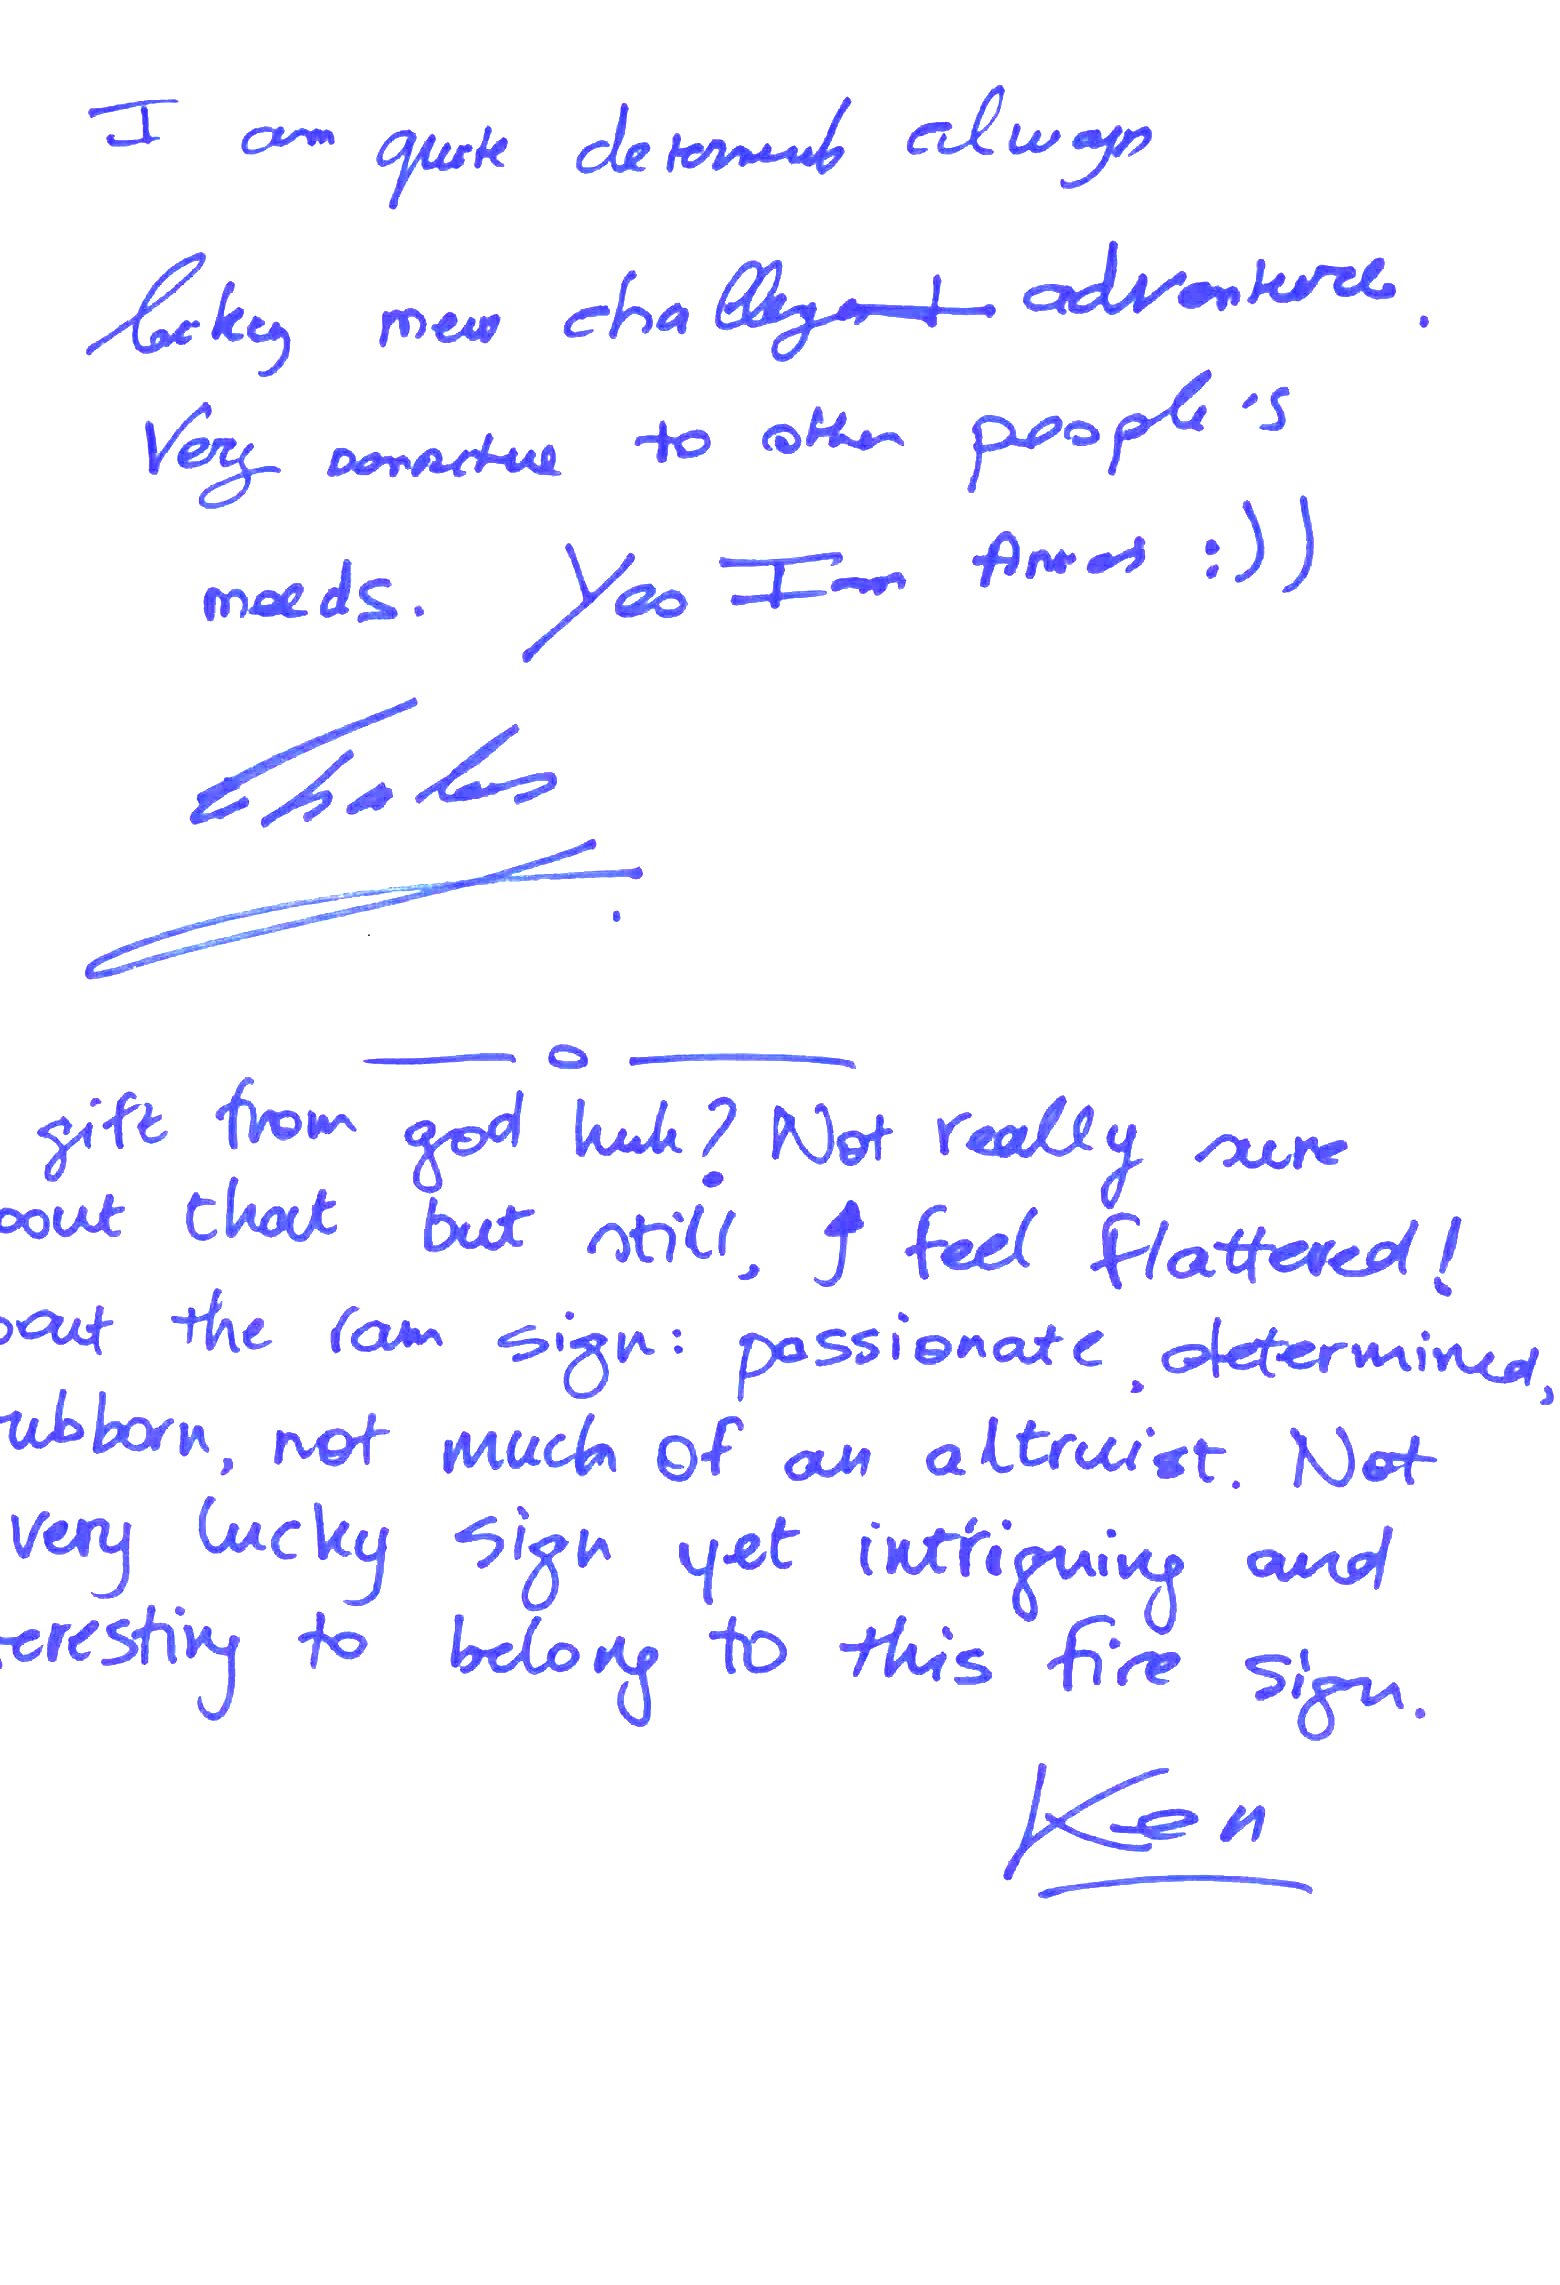 I am quite determined always
looking new challenge adventure.
Very sensitive to other people's
needs. Yes I'm Aries :))
gift from god huh? Not really sure
bout that but still, I feel flattered!
out the ram sign: passionate, determined,
ubborn, not much of an altruist. Not
very lucky sign yet intriguing and
eresting to belong to this fire sign.
Ken